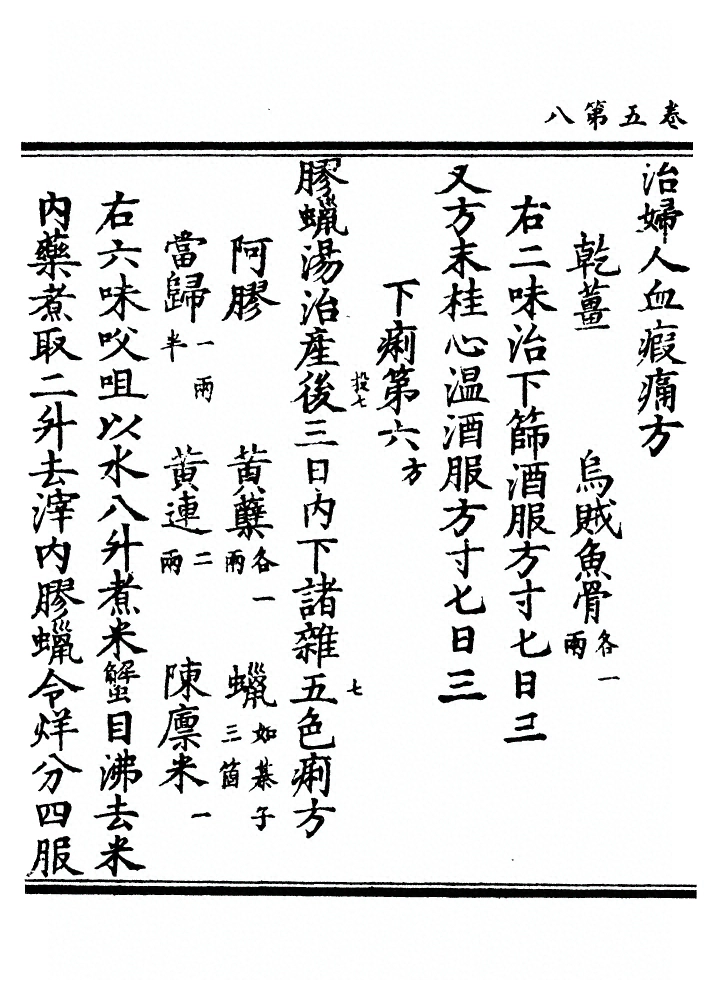 卷五第八
治婦人血瘕痛方
乾薑 烏賊魚骨各一兩
右二味治下篩酒服方寸匕日三
又方末桂心温酒服方寸匕日三
下痢第六方
投七
膠蠟湯治產後三日内下諸雜五色痢方
七
阿膠 黃蘗各一兩 蠟如棊子三箇
當歸一兩半 黃連二兩 陳廪米一
右六味㕮咀以水八升煮米蟹目沸去米
内藥煮取二升去滓内膠蠟令烊分四服